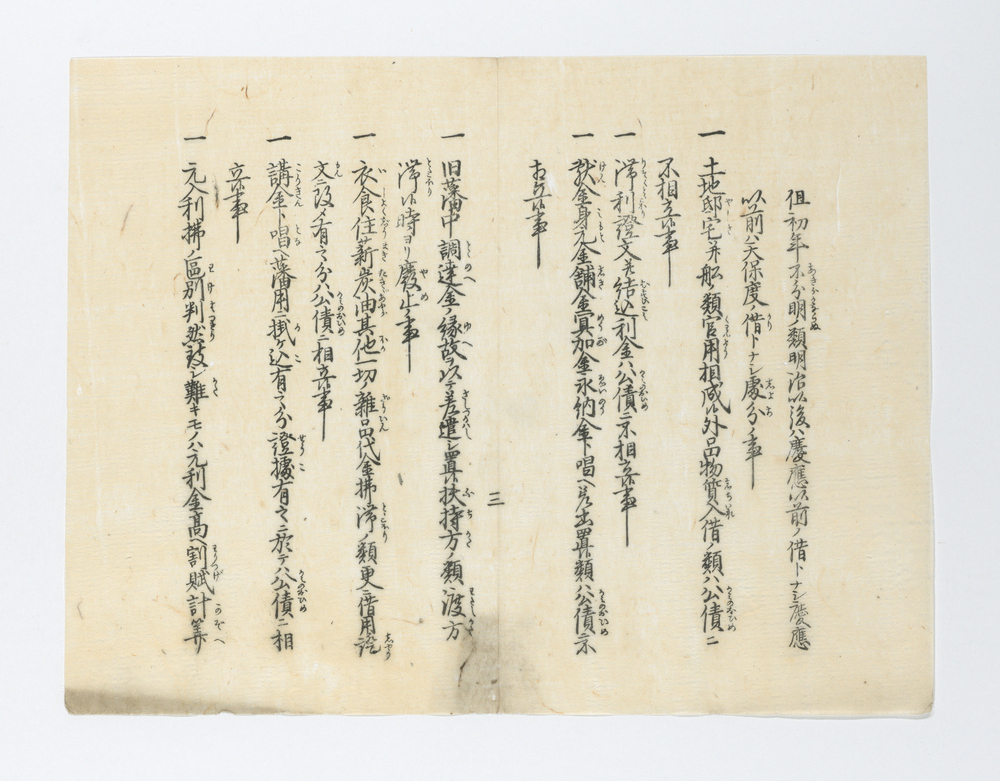 但初年不分明ノ類明治以後ハ慶應以前ノ借トナシ慶應
以前ハ天保度ノ借トナシ處分ノ事
一 土地邸宅并船ノ類官用相成候外品物質入借ノ類ハ公債ニ
不相立候事
一 滞利證文并結込利金ハ公債ニ不相立候事
一 獻金身元金舗金冥加金永納金ト唱ヘ差出置候類ハ公債ニ不
相立候事
一 旧藩中調達金ノ縁故ヲ以テ差遣シ置候扶持方ノ類渡方
滞候時ヨリ廢止ノ事
三
一 衣食住薪炭油其他一切雜品代金拂滞ノ類更ニ借用證
文ニ改メ有之分ハ公債ニ相立候事
一 講金ト唱藩用ニ掛ケ込有之分證據有之ニ於テハ公債ニ相
立候事
一 元入利拂ノ區別判然致シ難キモノハ元利金高ヘ割賦計算